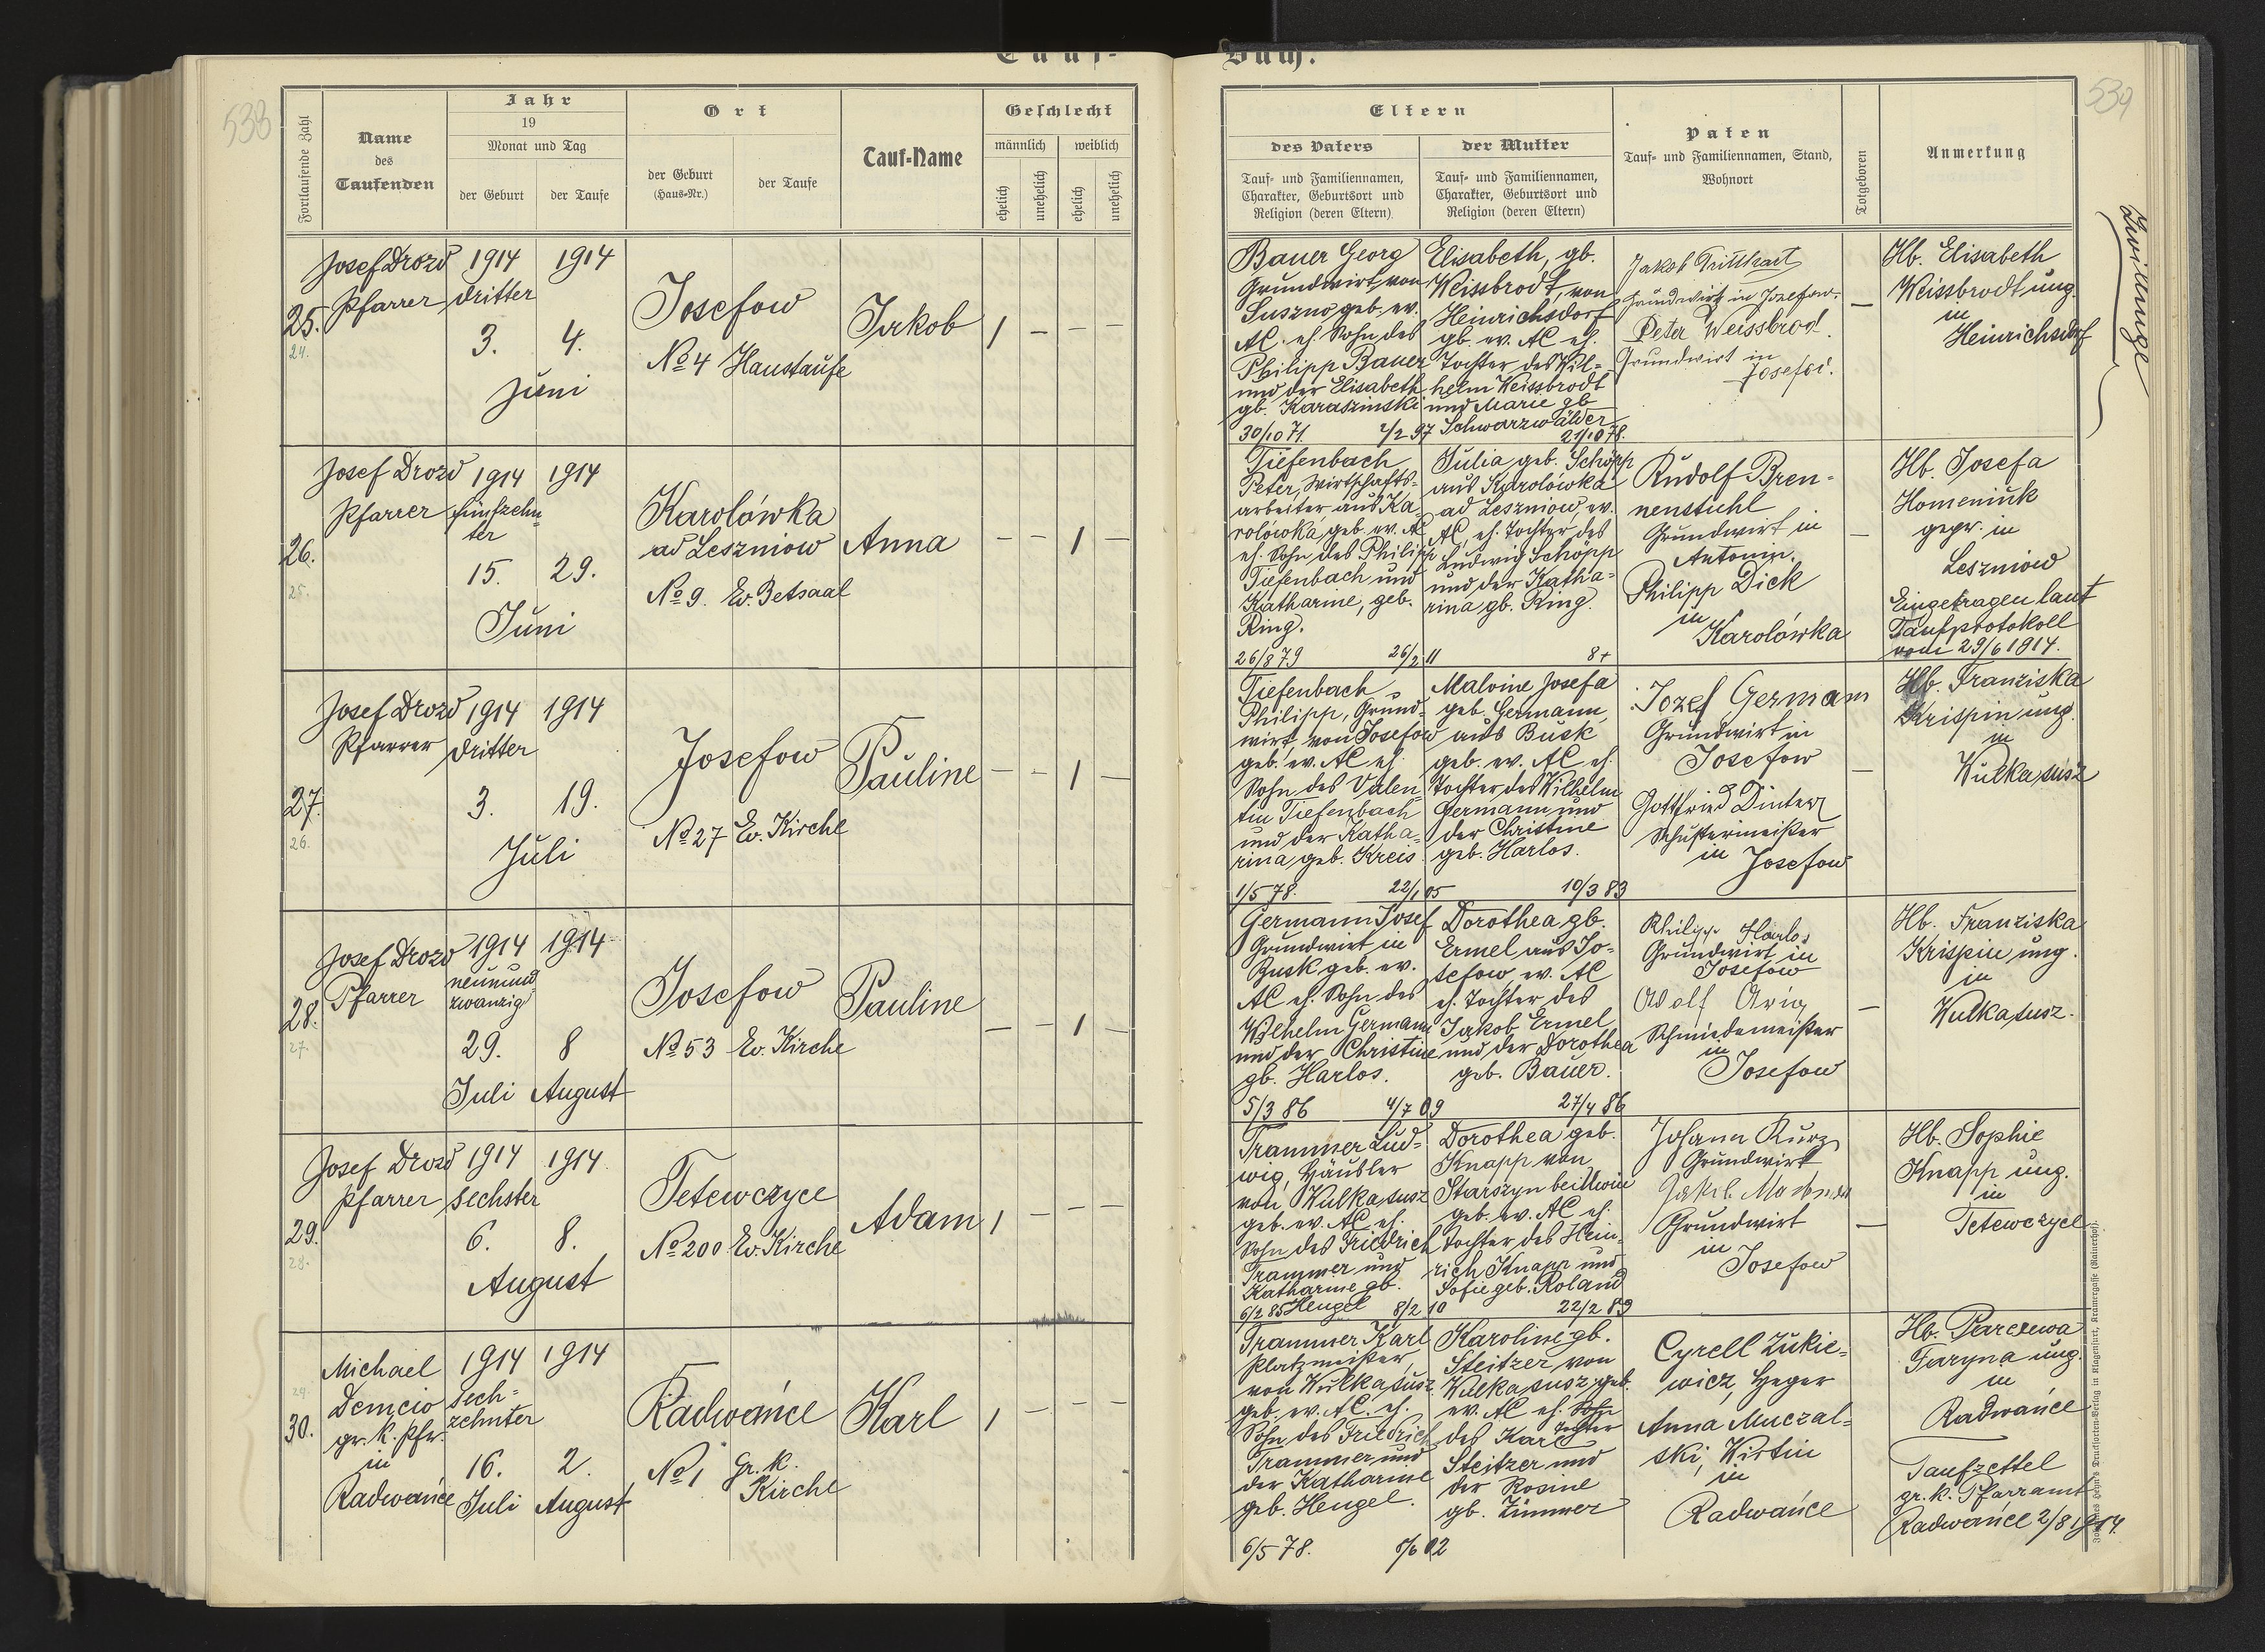 Tauf-
538
Fortlaufende Zahl
Name
des
Taufenden
Jahr
19
Monat und Tag
der Geburt
der Taufe
Ort
der Geburt
(Haus-Nr.)
der Taufe
Tauf-Name
Geschlecht
männlich
weiblich
ehelich
unehelich
ehelich
unehelich
25.
24.
Josef Drozd
Pfarrer
1914 1914
dritter
3. 4.
Juni
Josefow
No 4 Haustaufe
Jakob
1 — — —
26.
25.
Josef Drozd
Pfarrer
1914 1914
fünfzehn-
ter
15. 29.
Juni
Karolówka
ad Leszniow
No 9. Ev. Betsaal
Anna
— — 1 —
27.
26.
Josef Drozd
Pfarrer
1914 1914
dritter
3. 19.
Juli
Josefow
No 27 Ev. Kirche
Pauline
— — 1 —
28.
27.
Josef Drozd
Pfarrer
1914 1914
neunund
zwanzig
29. 8
Juli August
Josefow
No 53 Ev. Kirche
Pauline
— — 1 —
29.
28.
Josef Drozd
Pfarrer
1914 1914.
sechster
6. 8.
August
Tetewczyce
No 200 Ev. Kirche
Adam
1 — — —
29.
30.
Michael
Demcio
gr. k. Pfr.
in
Radwańce
1914 1914
sech-
zehnter
16. 2.
Juli August
Radwańce
No 1 Gr. k.
Kirche
Karl
1 — — —
Buch.
539
Eltern
des Vaters
Tauf- und Familiennamen,
Charakter, Geburtsort und
Religion (deren Eltern)
der Mutter
Tauf- und Familiennamen,
Charakter, Geburtsort und
Religion (deren Eltern)
Paten
Tauf- und Familiennamen, Stand,
Wohnort
Totgeboren
Anmerkung
Zwillinge
Bauer Georg
Grundwirt, von
Suszno geb. ev.
AC. eh. Sohn des
Philipp Bauer
und der Elisabeth
gb. Karaszinski
30/10 71. 2/2 97
Elisabeth, gb.
Weissbrodt, von
Heinrichsdorf
gb. ev. AC eh.
Tochter des Wil-
helm Weissbrodt
und Marie gb
Schwarzwälder
21/10 78.
Jakob
Grundwirt in Josefow.
Peter Weissbrod
Grundwirt in
—
Hb. Elisabeth
Weissbrodt ung.
in
Heinrichsdorf
Tiefenbach
Peter, Wirtschafts-
arbeiter aus Ka-
rolówka, geb. ev. AC
eh. Sohn des Philipp
Tiefenbach und
Katharine, geb.
Ring.
26/8 79 26/2 11
Julia geb. Schöpp
aus Karolówka
ad Leszniow, ev.
AC, eh. Tochter des
Ludwig Schöpp
und der Katha-
rina gb. Ring.
Rudolf Bren-
nenstuhl
Grundwirt in
Antonin.
Philipp Dick
in
Karolówka
—
Hb. Josefa
Homeniuk
gepr. in
Leszniow
Eingetragen laut
Taufprotokoll
vom 29/6 1914.
Tiefenbach
Philipp, Grund-
wirt, von Josefow
geb. ev. AC eh.
Sohn des Valen-
tin Tiefenbach
und der Katha-
rina geb. Kreis.
1/5 78. 22/1 05
Malvine Josefa
geb. Germann,
aus Busk
geb. ev. AC eh.
Tochter des Wilhelm
Germann und
der Christine
geb. Harlos.
10/3 83
Jozef Germann
Grundwirt in
Josefow
Gottfried Dinter
Schustermeister
in Josefow
—
Hb. Franziska
Krispin ung.
in
Wulkasusz
Germann Josef
Grundwirt in
Busk geb. ev.
AC eh. Sohn des
Wilhelm Germann
und der Christine
gb. Harlos.
5/3 86 4/7 09
Dorothea gb.
Ermel aus Jo-
sefow ev. AC
eh. Tochter des
Jakob Ermel
und der Dorothea
geb. Bauer.
27/4 86
Philipp Harlos
Grundwirt in
Josefow
Adolf
Schmiedemeister
in
Josefow
—
Hb. Franziska
Krispin ung.
in
Wulkasusz.
Trammer Lud-
wig, Häusler
von Wulkasusz
geb. ev. AC eh.
Sohn des Friedrich
Trammer und
Katharine gb.
6/2 85 Hengel 8/2 10
Dorothea geb.
Knapp von
Starszyn
geb. ev. AC eh.
Tochter des Hein-
rich Knapp und
Sofie geb. Roland
22/2 89
Johann Kurz
Grundwirt
Jakob
Grundwirt
in
Josefow
—
Hb. Sophie
Knapp ung.
in
Tetewczyce
Trammer Karl
Platzmeister,
von Wulkasusz
geb. ev. AC. eh.
Sohn des Friedrich
Trammer und
der Katharine
geb. Hengel.
6/5 78.
Karoline gb.
Steitzer von
Wulkasusz, geb.
ev. AC eh. Sohn
des Karl Tochter
Steitzer und
der Rosine
gb. Zimmer
Cyrell Zukie-
wicz, Heger
Anna Muczal-
ski, Wirtin
in
Radwańce
Hb. Parczewa
Faryna ung.
in
Radwańce
Taufzettel
gr. k. Pfarramt
Radwańce 2/8 1914.
Johannes Heyn's Drucksorten-Verlag in Klagenfurt, Kramergasse (Rainerhof).